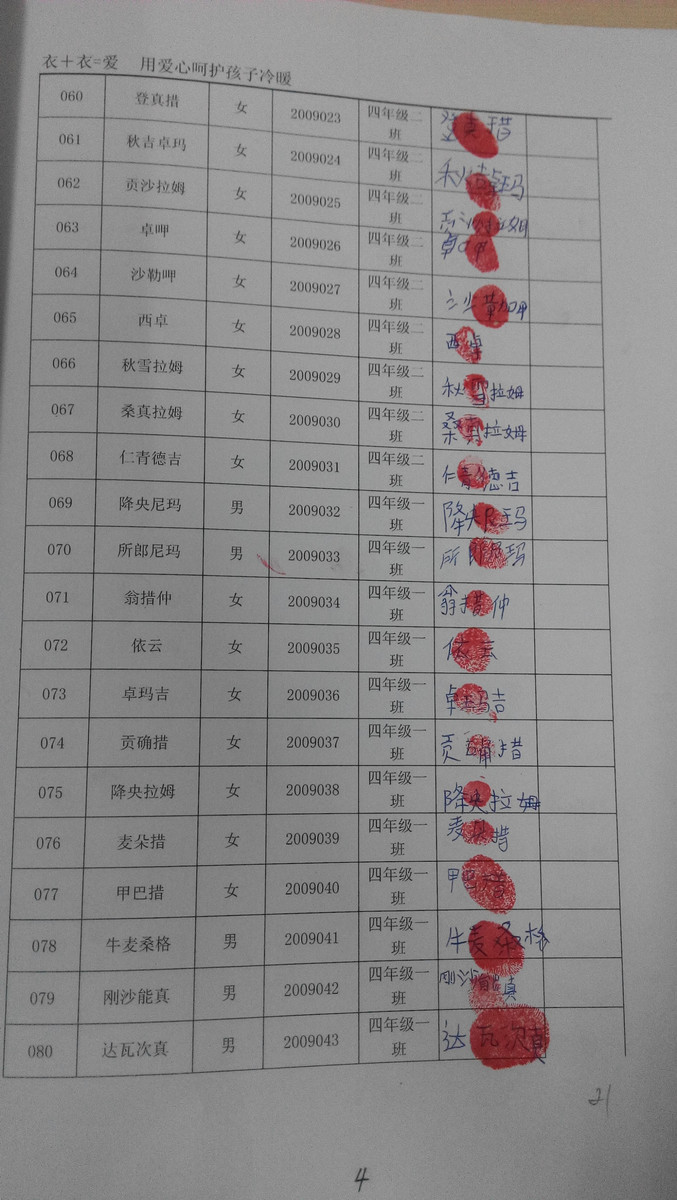 衣＋衣=爱 用爱心呵护孩子冷暖
060 登真措 女 2009023 四年级二班 登真措
061 秋吉卓玛 女 2009024 四年级二班 秋吉卓玛
062 贡沙拉姆 女 2009025 四年级二班 贡沙拉姆
063 卓呷 女 2009026 四年级二班 卓呷
064 沙勒呷 女 2009027 四年级二班
065 西卓 女 2009028 四年级二班 西卓
066 秋雪拉姆 女 2009029 四年级二班 秋雪拉姆
067 桑真拉姆 女 2009030 四年级二班 桑真拉姆
068 仁青德吉 女 2009031 四年级二班 仁青德吉
069 降央尼玛 男 2009032 四年级一班 降央尼玛
070 所郎尼玛 男 2009033 四年级一班 所郎尼玛
071 翁措仲 女 2009034 四年级一班 翁措仲
072 依云 女 2009035 四年级一班 依云
073 卓玛吉 女 2009036 四年级一班 卓玛吉
074 贡确措 女 2009037 四年级一班 贡确措
075 降央拉姆 女 2009038 四年级一班 降央拉姆
076 麦朵措 女 2009039 四年级一班 麦朵措
077 甲巴措 女 2009040 四年级一班 甲巴措
078 牛麦桑格 男 2009041 四年级一班 牛麦桑格
079 刚沙能真 男 2009042 四年级一班 刚沙能真
080 达瓦次真 男 2009043 四年级一班 达瓦次真
21
4